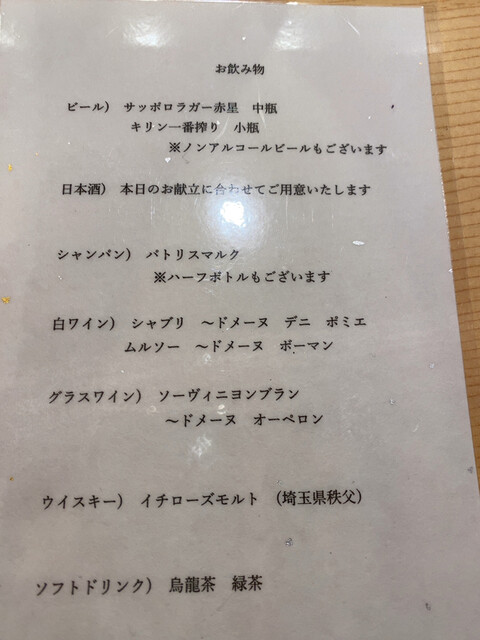 お飲み物
ビール） サッポロラガー赤星 中瓶
キリン一番搾り 小瓶
※ノンアルコールビールもございます
日本酒） 本日のお献立に合わせてご用意いたします
シャンパン） パトリスマルク
※ハーフボトルもございます
白ワイン） シャブリ ～ドメーヌ デニ ポミエ
ムルソー ～ドメーヌ ボーマン
グラスワイン） ソーヴィニヨンブラン
～ドメーヌ オーペロン
ウイスキー） イチローズモルト （埼玉県秩父）
ソフトドリンク） 烏龍茶 緑茶